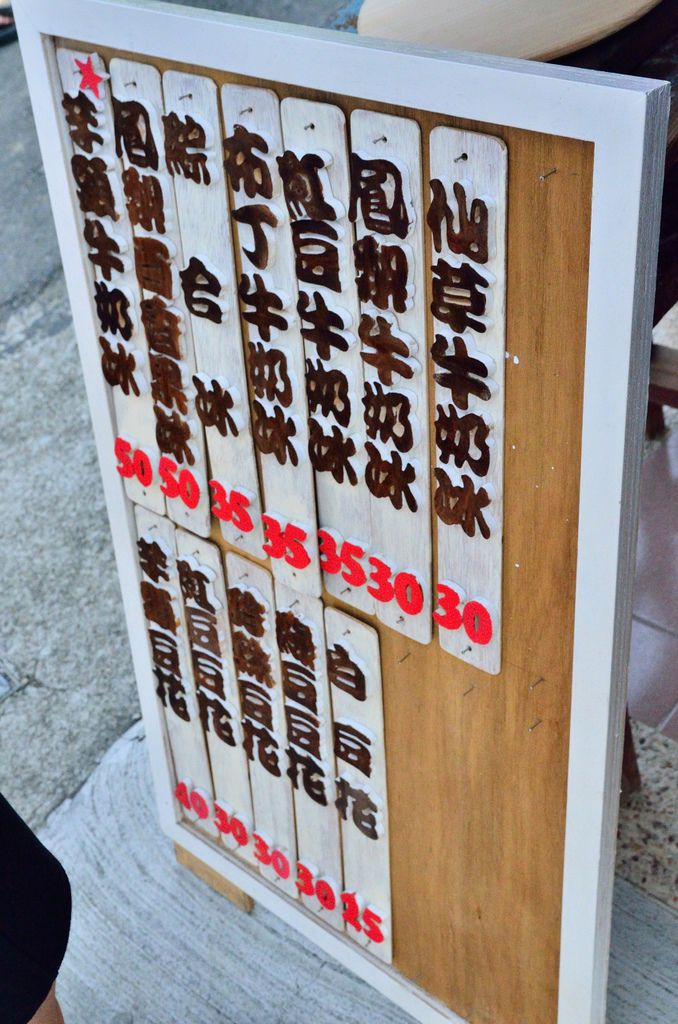 仙草牛奶冰 30
鳳梨牛奶冰 30
紅豆牛奶冰 35
布丁牛奶冰 35
綜合冰 35
鳳梨百香果冰 50
芋頭牛奶冰 50
白豆花 25
綠豆豆花 30
豆花 30
紅豆豆花 30
芋頭豆花 40